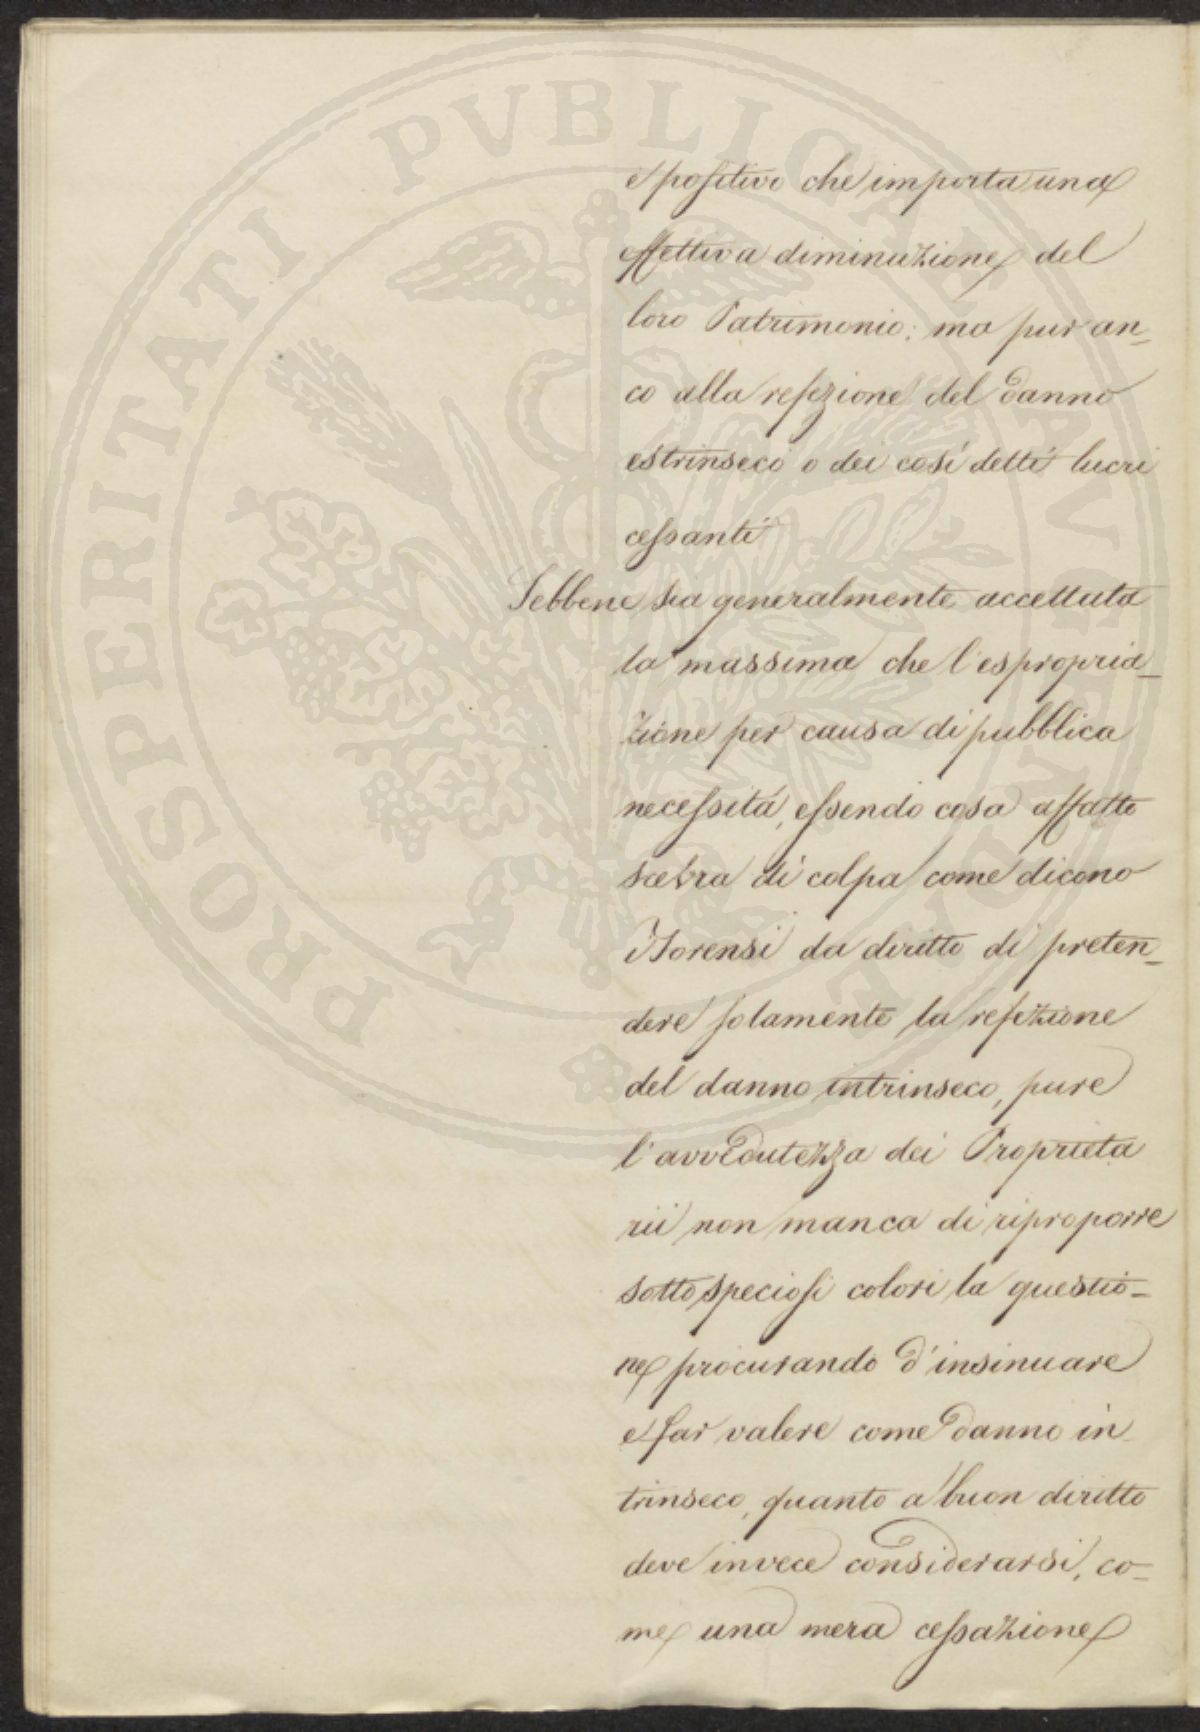 e positivo che importa una
effettiva diminuzione del
loro Patrimonio: ma pur an-
co alla refezione del danno
estrinseco o dei cosí detti lucri
cessanti
Sebbene sia generalmente accettata
la massima che l'espropria-
zione per causa di pubblica
necessitá, essendo cosa affatto
scevra di colpa come dicono
i Forensi da diritto di preten-
dere solamente la refezione
del danno intrinseco, pure
l'avvedutezza dei Proprieta
rii non manca di riproporre
sotto speciosi colori la questio-
ne procurando d'insinuare
e far valere come danno in
trinseco, quanto a buon diritto
deve invece considerarsi, co-
me una mera cessazione
PROSPERITATI PVBLICAE AVGENDAE